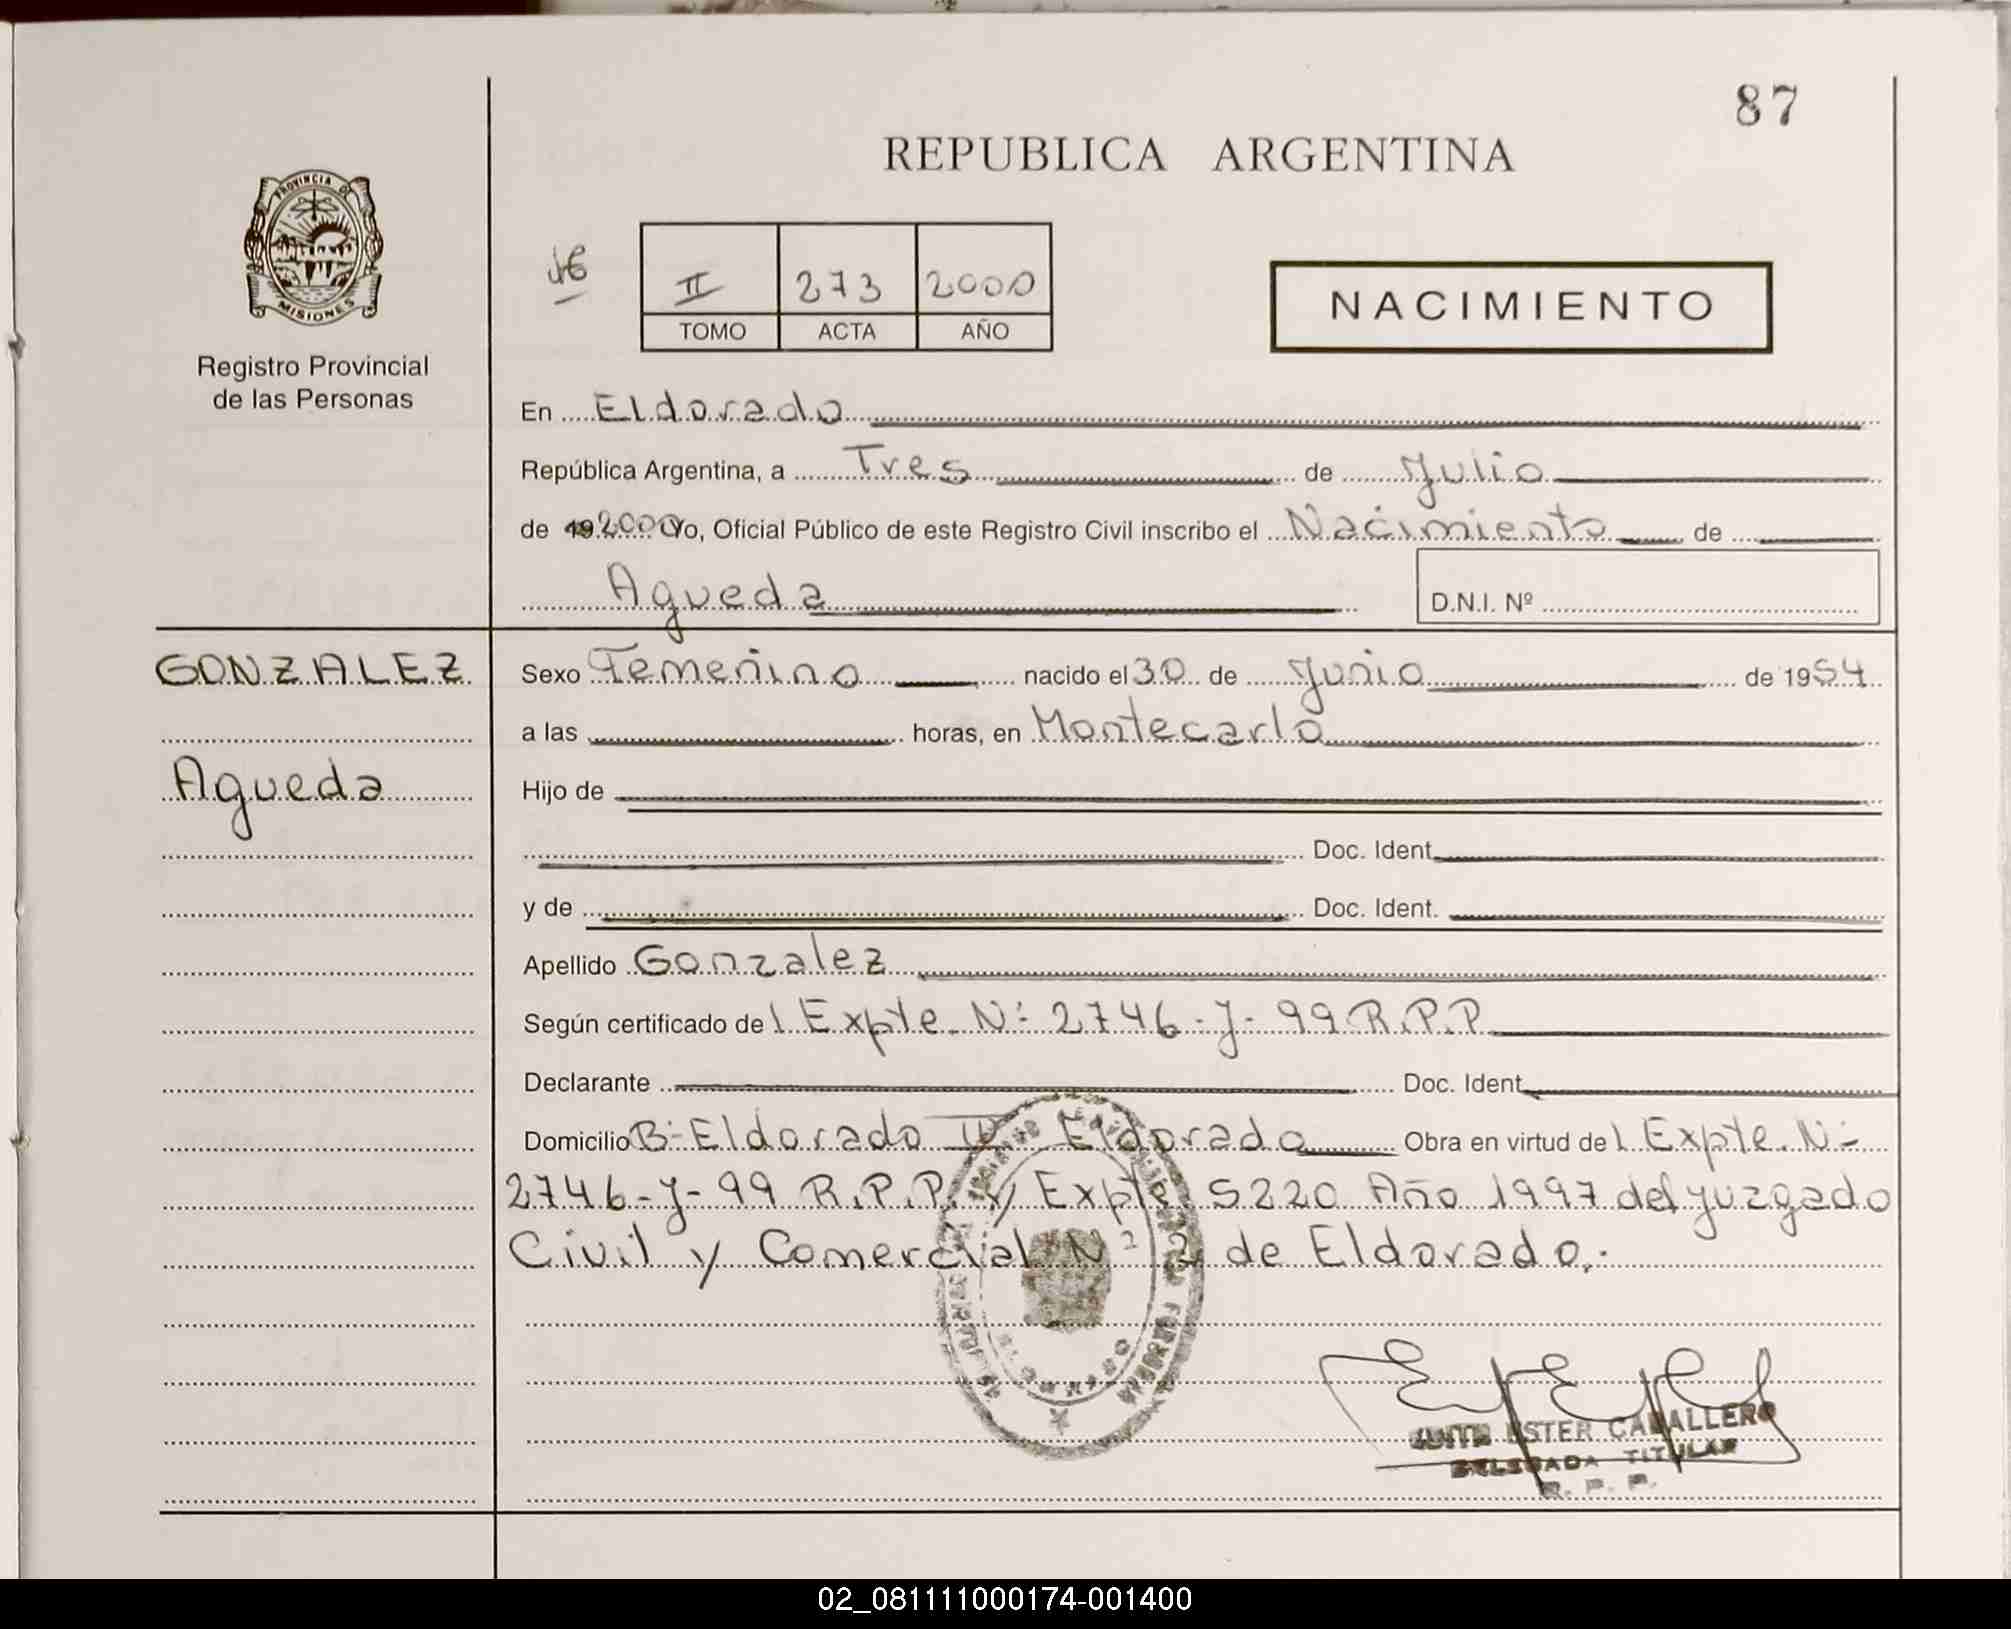 87
REPUBLICA ARGENTINA
PROVINCIA DE
MISIONES
Registro Provincial
de las Personas
II 273 2000
TOMO ACTA AÑO
NACIMIENTO
En Eldorado
República Argentina, a Tres de Julio
de 19 2000 Yo, Oficial Público de este Registro Civil inscribo el Nacimiento de
Agueda D.N.I. Nº
GONZALEZ
Agueda
Sexo Femenino nacido el 30 de Junio de 1954
a las horas, en Montecarlo
Hijo de
Doc. Ident.
y de Doc. Ident.
Apellido Gonzalez
Según certificado del Expte. Nº 2746-J-99 R.P.P.
Declarante Doc. Ident.
Domicilio Bº Eldorado Eldorado Obra en virtud del Expte. Nº
2746-J-99 R.P.P. y Expte 5220 Año 1997 del Juzgado
Civil y Comercial Nº 2 de Eldorado.-
ESTER CABALLERO
DELEGADA TITULAR
R. P. P.
02_081111000174-001400